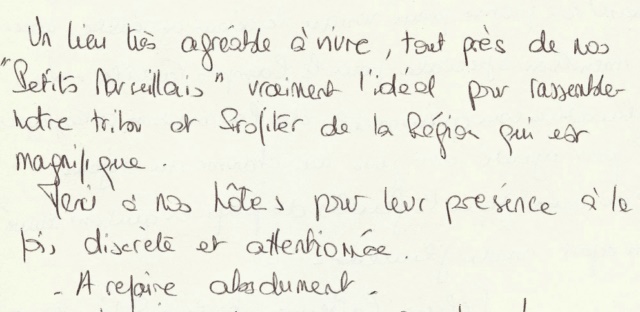 Un lieu très agréable à vivre, tout près de nos
"Petits Marseillais" vraiment l'idéal pour rassembler
notre tribu et Profiter de la Région qui est
magnifique.
Merci à nos hôtes pour leur présence à la
fois discrète et attentionnée.
- A refaire absolument -